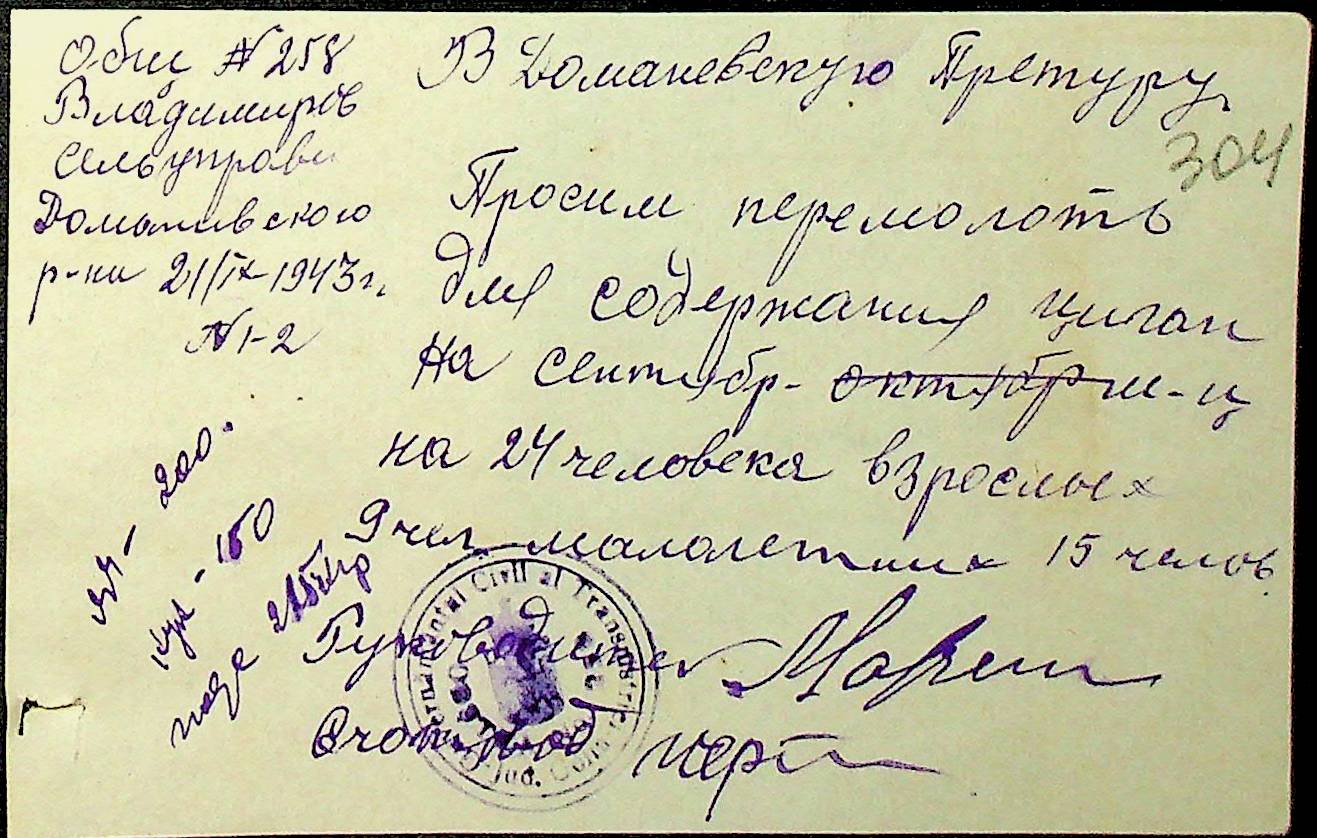 Общ № 258
Владимиров
Сельуправи
Доманивского
р-на 21/IX-1943 г.
№ 1-2
В Доманевскую Претуру
304
Просим перемолоть
для содержания циган
на сентябр- октябр м-ц
на 24 человека взрослых
9 чел. малолетних 15 челов
яч- 200.
кук- 150
Руководител
Счотовод
Guvernamantul Civil al Transnistriei
Jud.